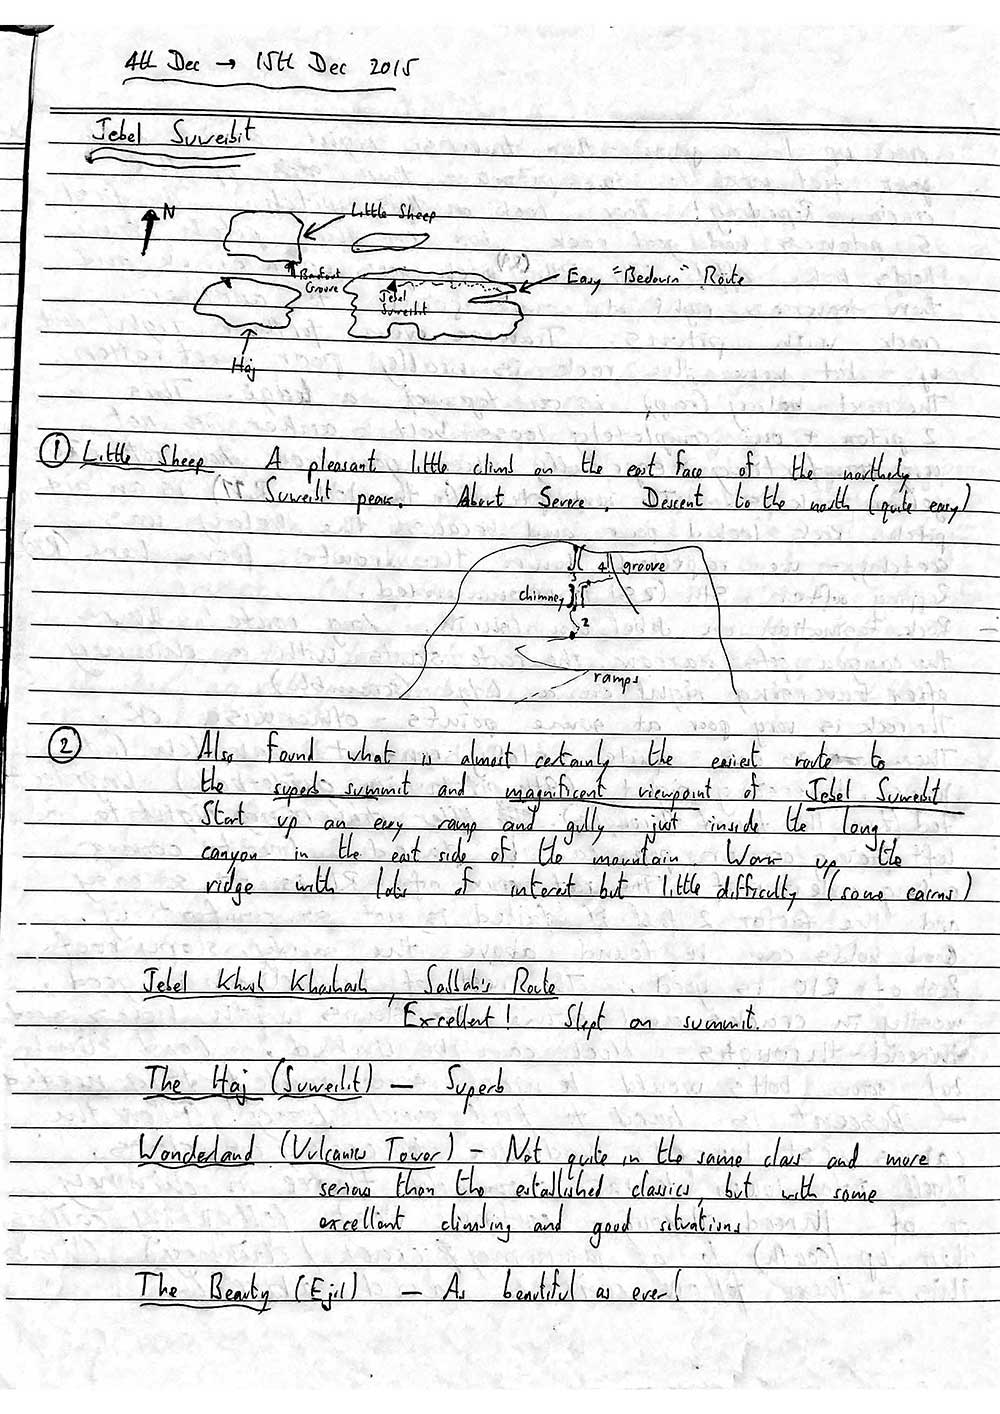 4th Dec → 15th Dec 2015
Jebel Suweibit
N
Little Sheep
Groove
Easy "Bedouin" Route
Jebel
Suweibit
Haj
① Little Sheep. A pleasant little climb on the east face of the northerly
Suweibit peak. About Severe. Descent to the north (quite easy)
4 groove
3
chimney
2
ramps
② Also found what is almost certainly the easiest route to
the superb summit and magnificent viewpoint of Jebel Suweibit
Start up an easy ramp and gully just inside the long
canyon in the east side of the mountain. Work up the
ridge with lots of interest but little difficulty (some cairns)
Jebel Khush Khashah, Sallah's Route
Excellent! Slept on summit.
The Haj (Suweibit) — Superb
Wonderland (Vulcanics Tower) – Not quite in the same class and more
serious than the established classics, but with some
excellent climbing and good situations
The Beauty (Ejil) — As beautiful as ever!